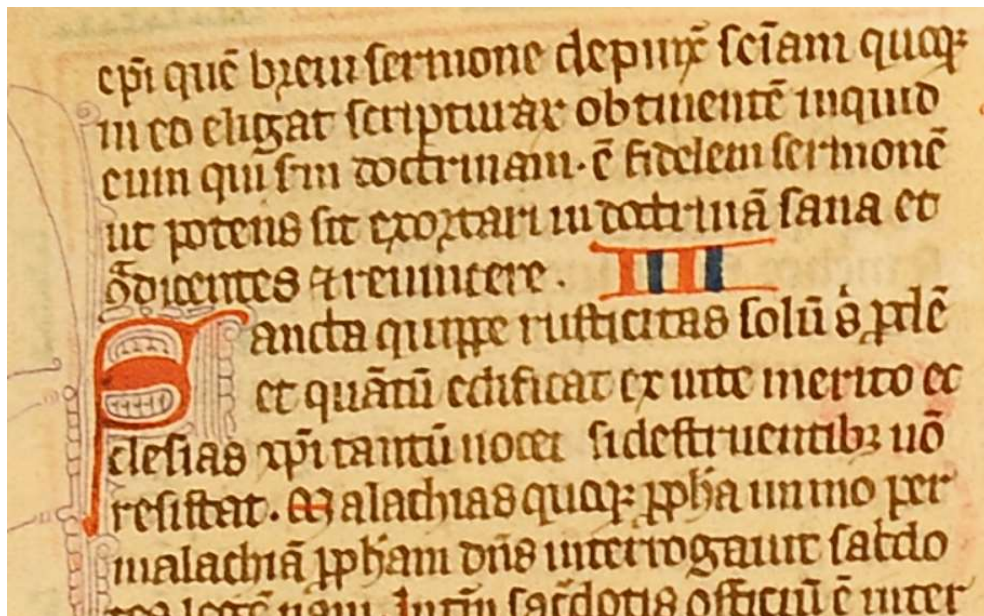 ep̄i quē breui sermone depinx̄ sc̄iam quoqꝫ
in eo eligat scripturaꝝ obtinentē inquid
eum qui s̄m doctrinam· ē fidelem sermonē
ut potens sit exortari in doctrinā sana et
ꝯ̄dicentes ⁊ reuincere . III
Sancta quippe rusticitas solū s͛ ꝓdē
et quātū edificat ex uite merito ec
clesias xp̄i tantū nocet si destruentibꝫ nō
resistat. Malachias quoqꝫ ꝓpha immo per
malachiā ꝓpham dn̄s interrogauit sac̄do
tes legē